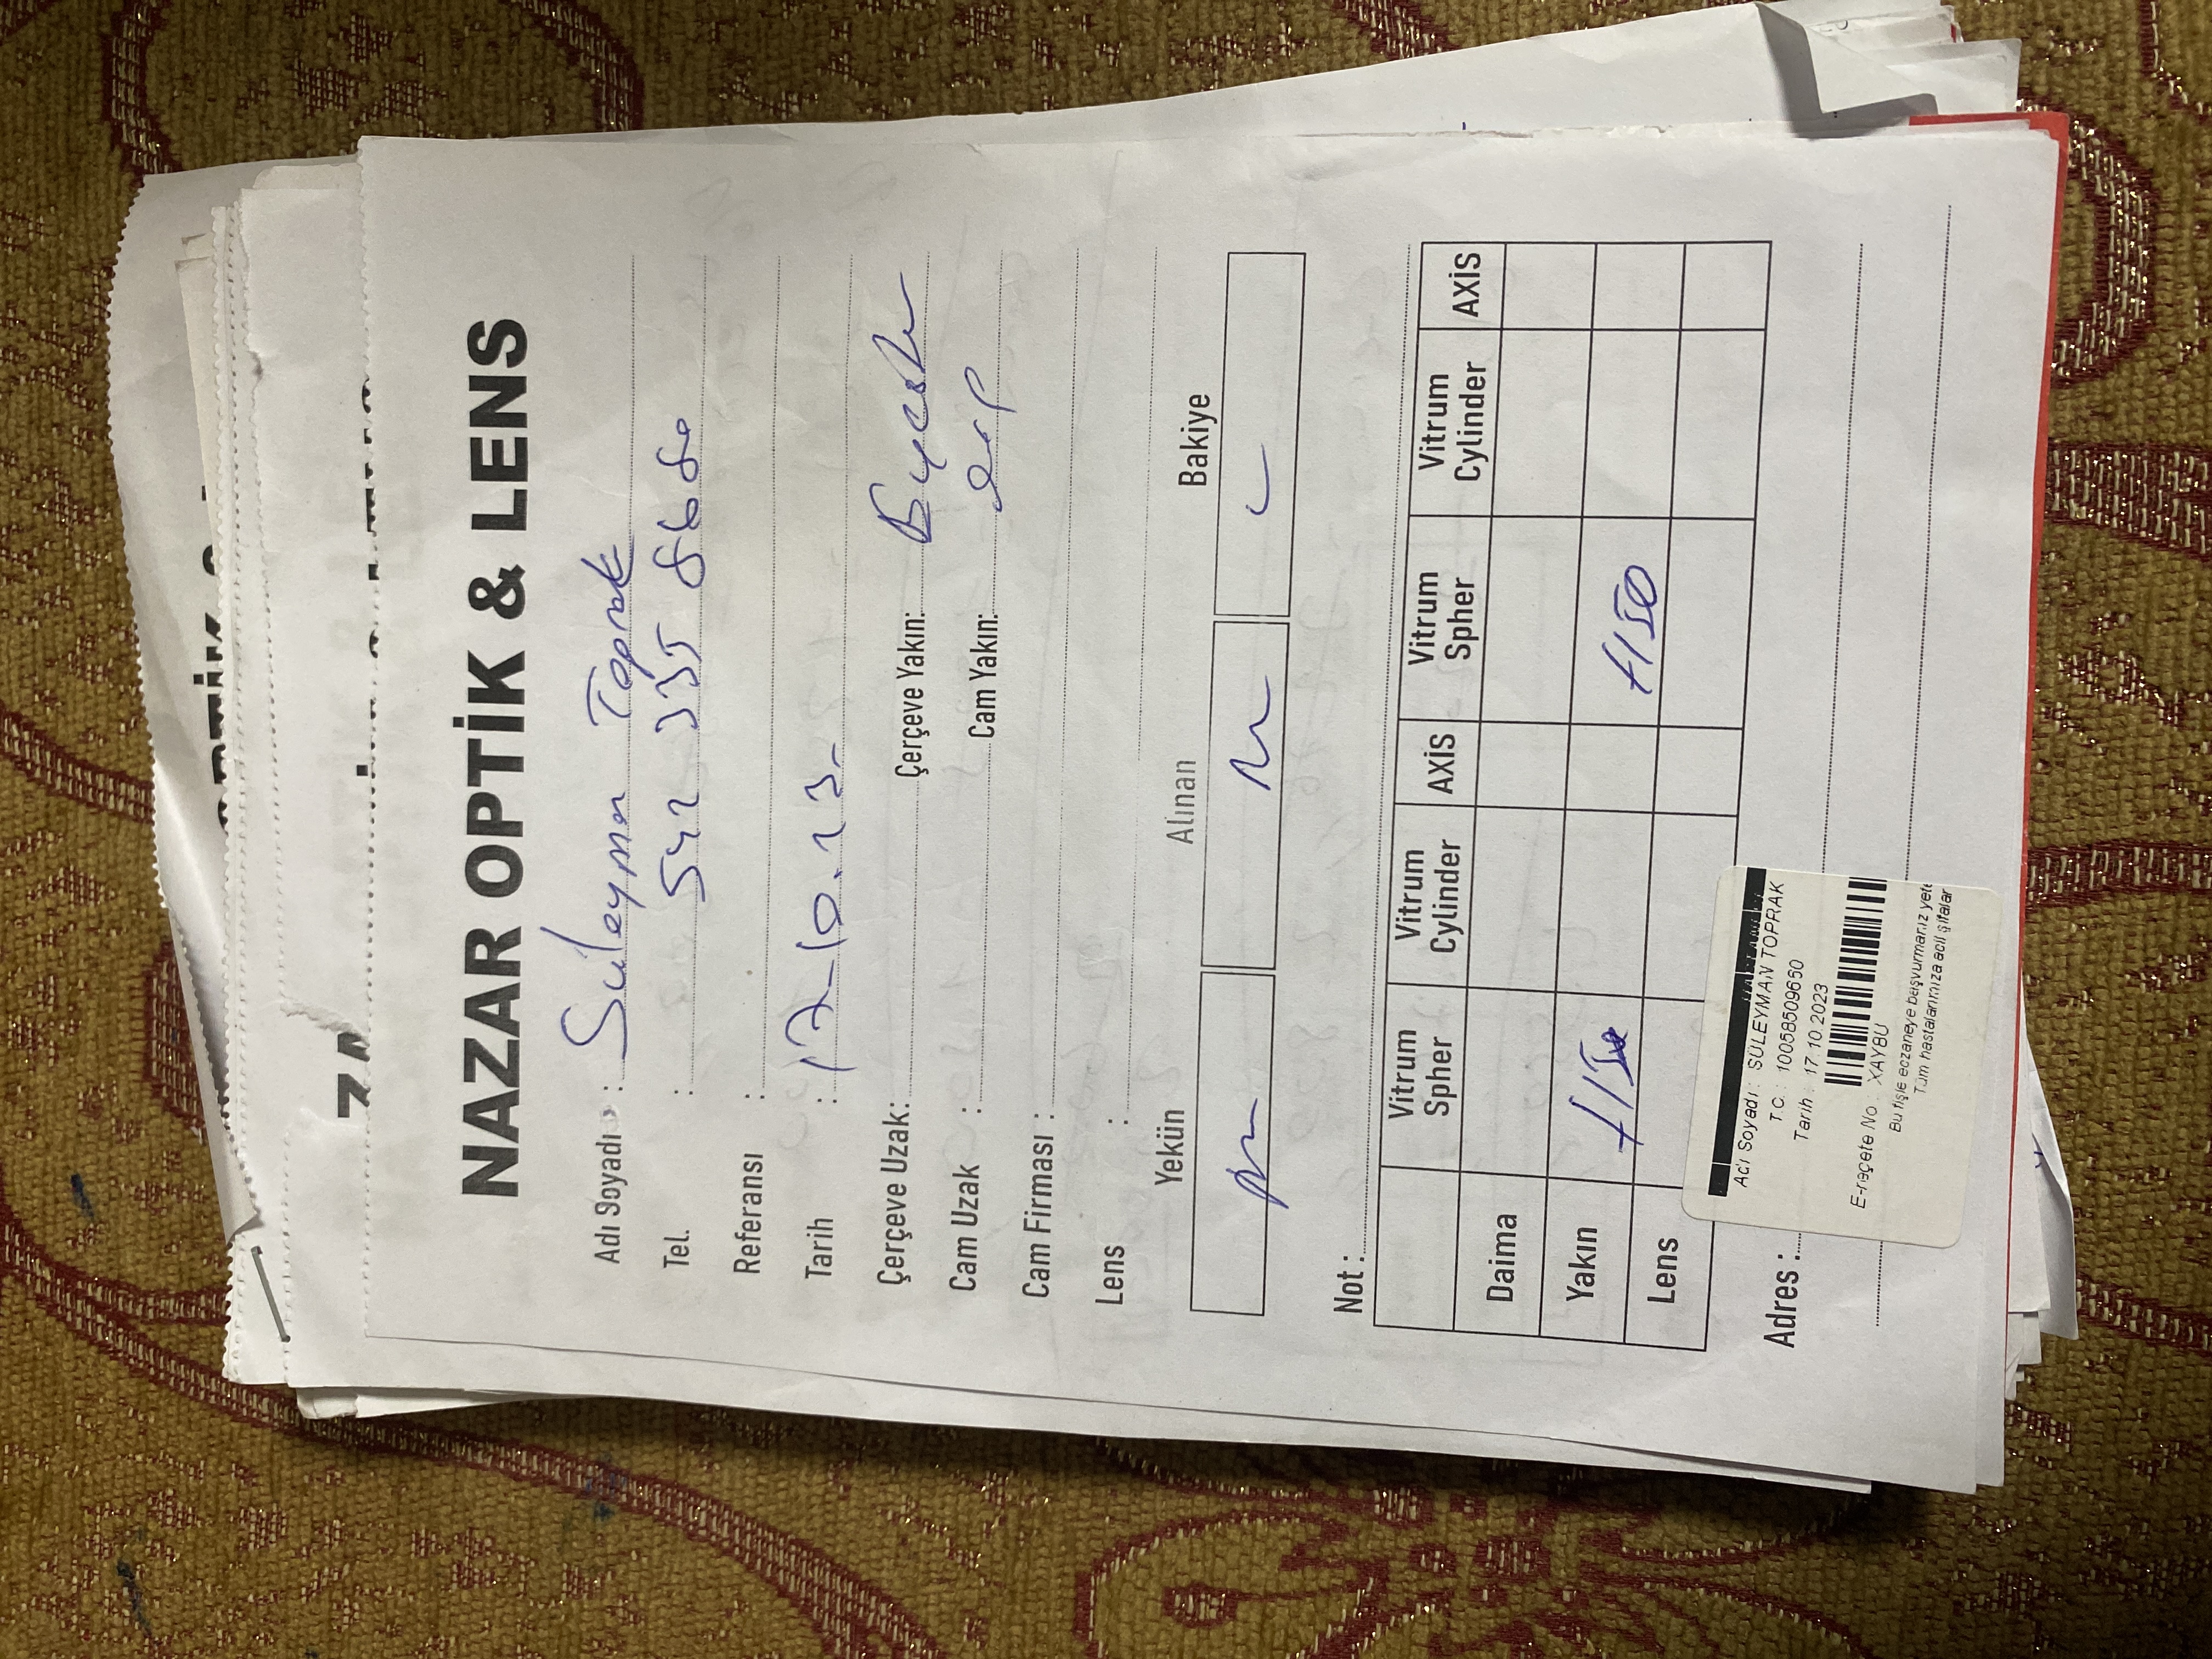 NAZAR OPTİK & LENS
Adı Soyadı : Süleyman Toprak
Tel. : 542 335 8680
Referansı :
Tarih : 17-10.23-
Çerçeve Uzak: Çerçeve Yakın:
Cam Uzak : Cam Yakın:
Cam Firması :
Lens :
Yekün Alınan Bakiye
Not :
Vitrum Spher Vitrum Cylinder AXİS Vitrum Spher Vitrum Cylinder AXİS
Daima
Yakın +150 +150
Lens
Adres :
Adı Soyadı : SÜLEYMAN TOPRAK
T.C. : 10058509660
Tarih : 17.10.2023
E-reçete No : XAY8U
Bu fişle eczaneye başvurmanız yete
Tüm hastalarımıza acil şifalar